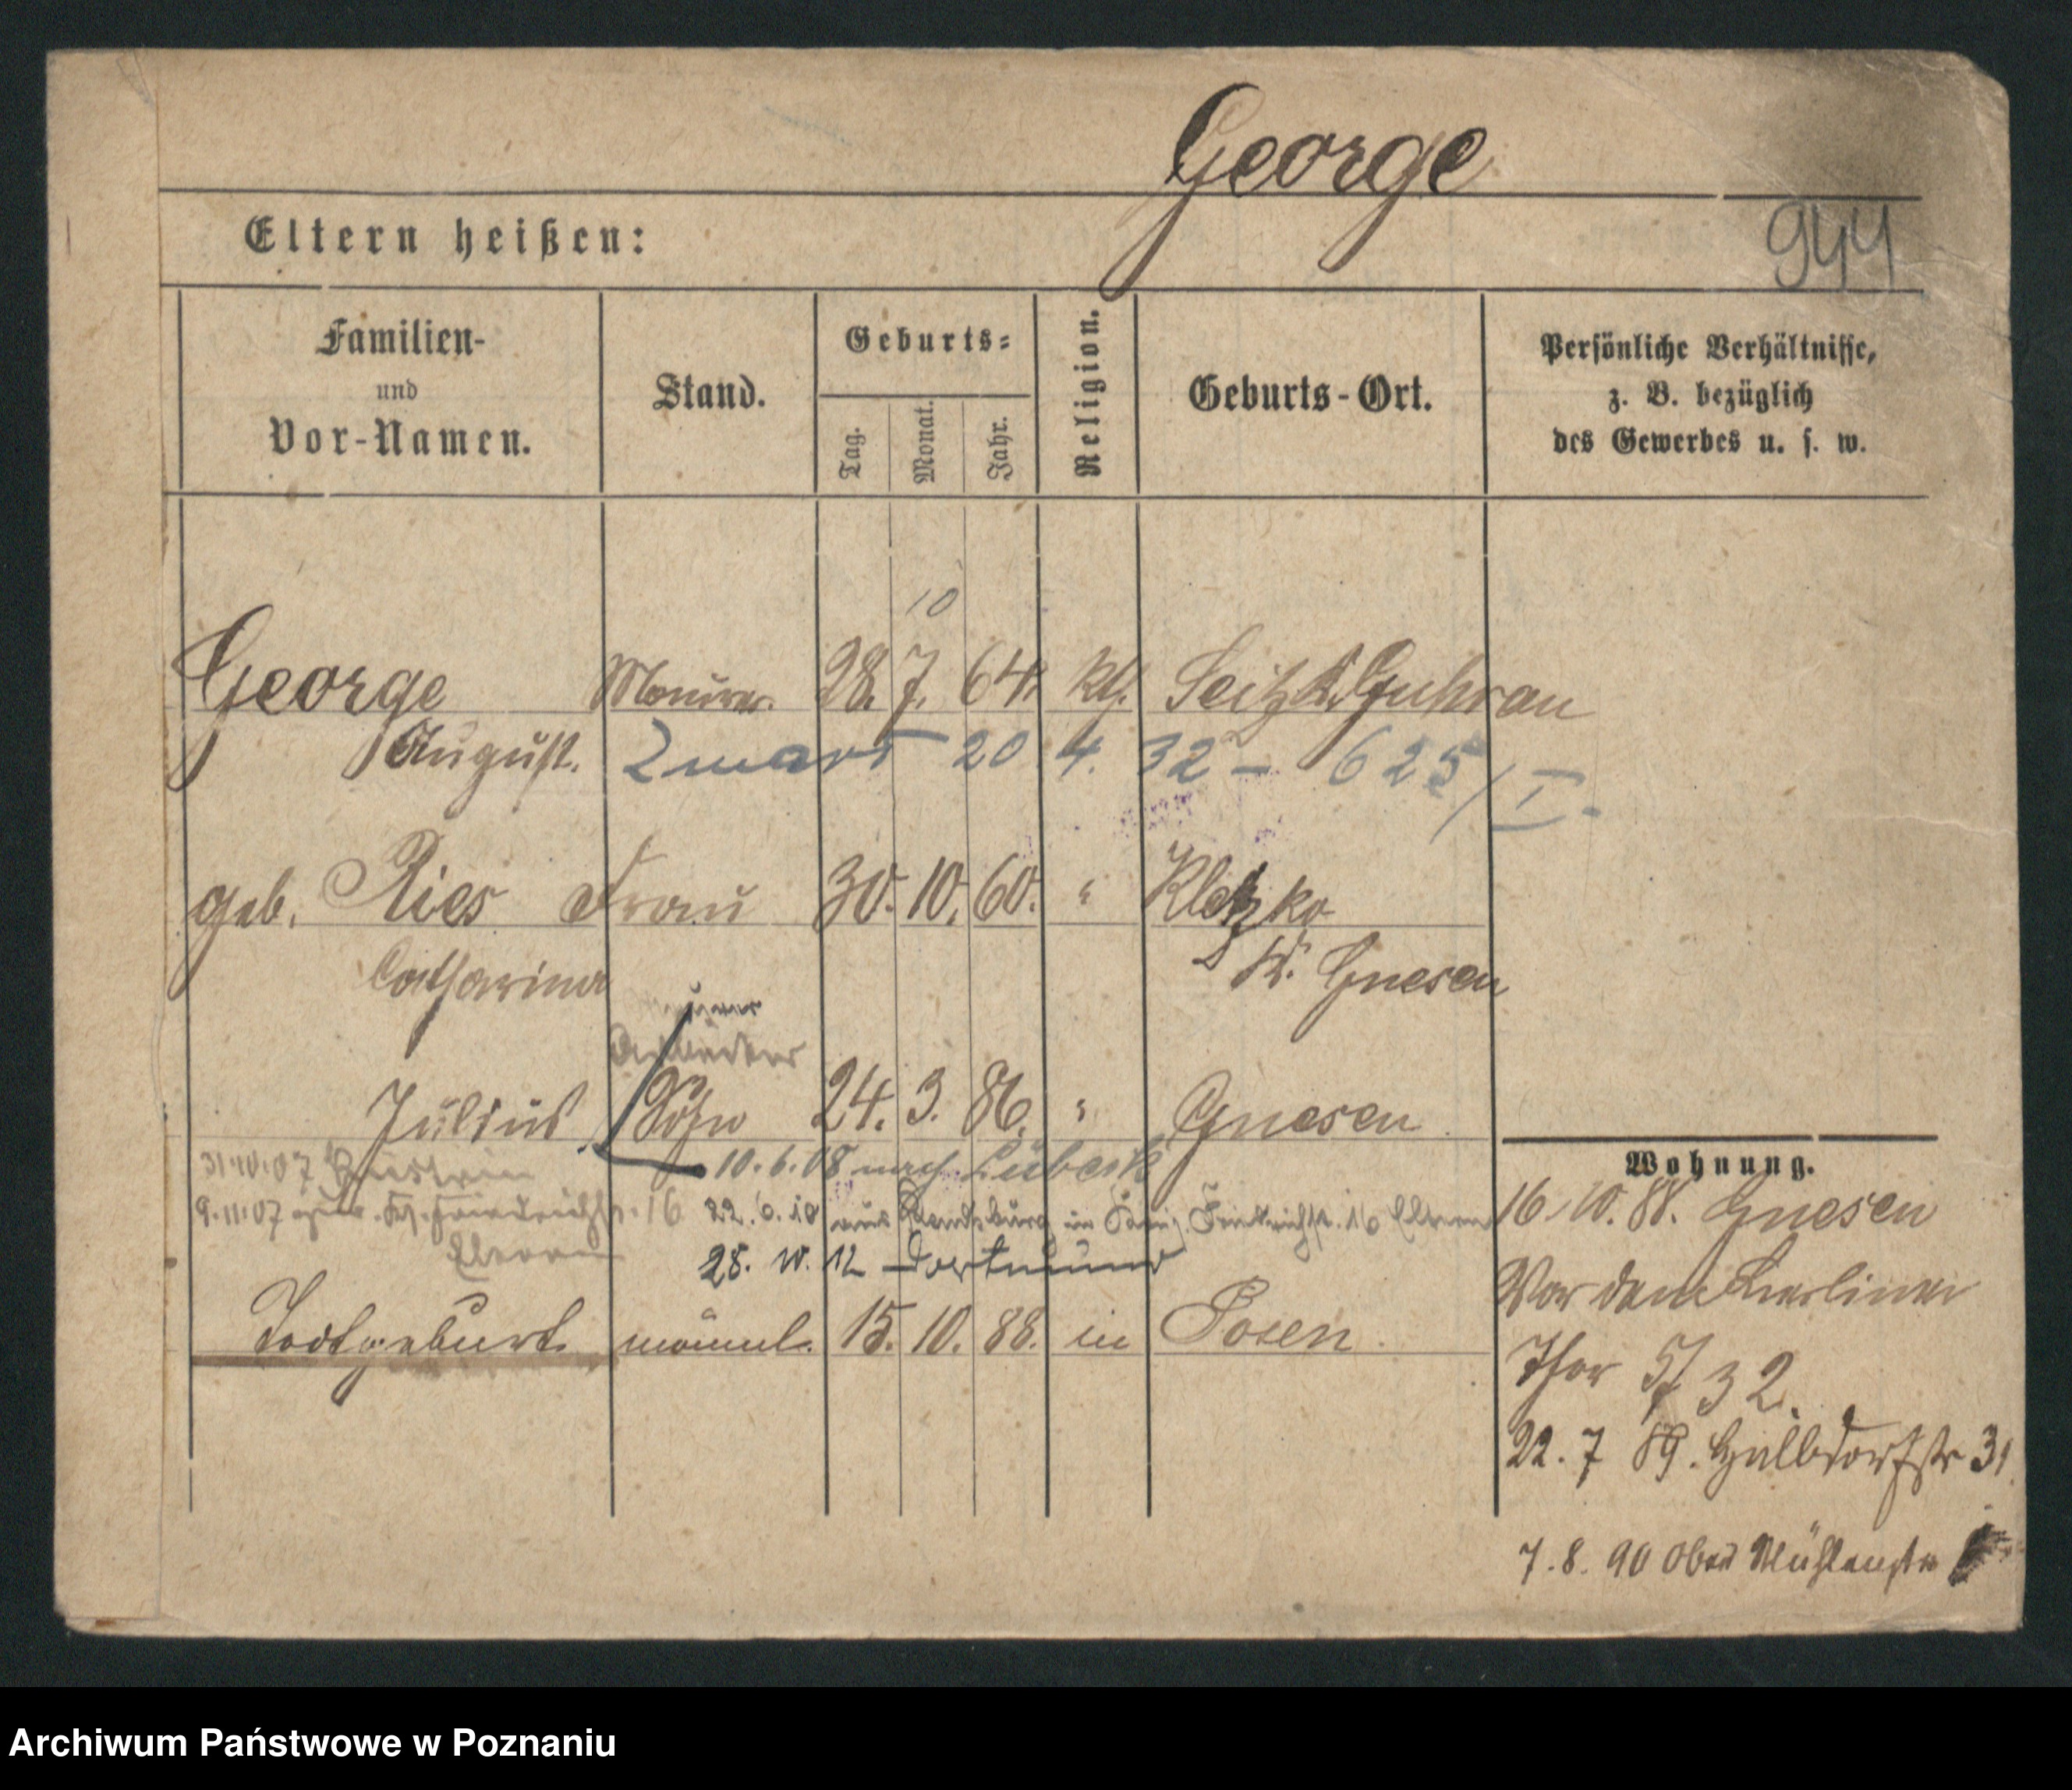 George
944
Eltern heißen:
Familien-
und
Vor-Namen.
Stand.
Geburts-
Tag.
Monat.
Jahr.
Religion.
Geburts-Ort.
Persönliche Verhältnisse,
z. B. bezüglich
des Gewerbes u. s. w.
10
George Maurer 28. 7. 64. kth. Seitz Kr. Guhrau
August. Zmarł 20 4. 32 – 625/I.
geb. Ries Frau 30. 10. 60. " Kletzko
Catharina Kr. Gnesen
Arbeiter
Julius Sohn 24. 3. 86. " Gnesen
31.10.07
10.6.08 nach Lübeck
9.11.07 16
22.6.10 aus in Friedrichstr. 16 Eltern
Eltern
28. 10. 12 Dortmund
Todtgeburt männl. 15. 10. 88. in Posen
Wohnung.
16. 10. 88. Gnesen
Vor dem Berliner
Thor 5/32.
22. 7 89. Halbdorfstr 31
7. 8. 90 Ober Mühlenstr
Archiwum Państwowe w Poznaniu